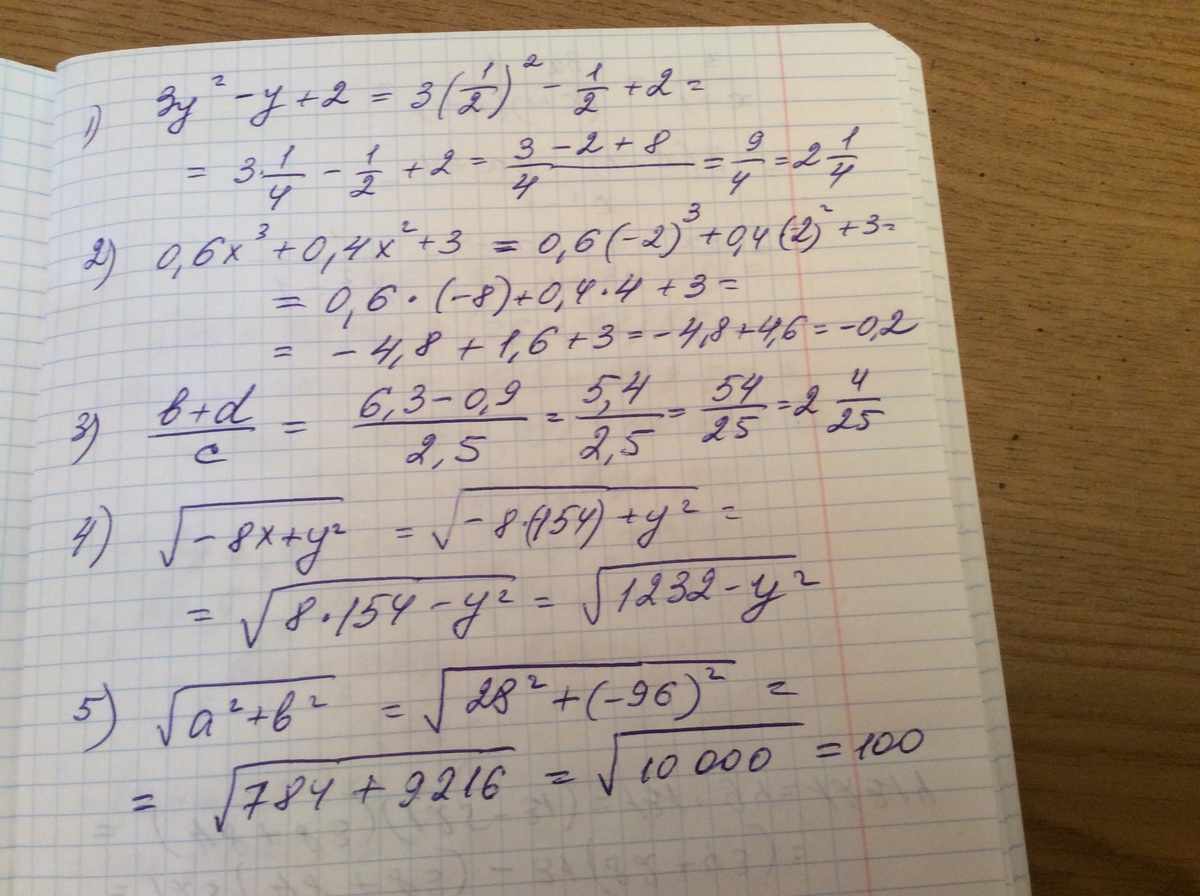 1) 3y² - y + 2 = 3(1/2)² - 1/2 + 2 =
= 3·1/4 - 1/2 + 2 = (3 - 2 + 8)/4 = 9/4 = 2 1/4
2) 0,6x³ + 0,4x² + 3 = 0,6(-2)³ + 0,4(-2)² + 3 =
= 0,6 · (-8) + 0,4 · 4 + 3 =
= -4,8 + 1,6 + 3 = -4,8 + 4,6 = -0,2
3) (b+d)/c = (6,3 - 0,9)/2,5 = 5,4/2,5 = 54/25 = 2 4/25
4) √(-8x + y²) = √(-8·(154) + y²) =
= √(8·154 - y²) = √(1232 - y²)
5) √(a² + b²) = √(28² + (-96)²) =
= √(784 + 9216) = √(10 000) = 100